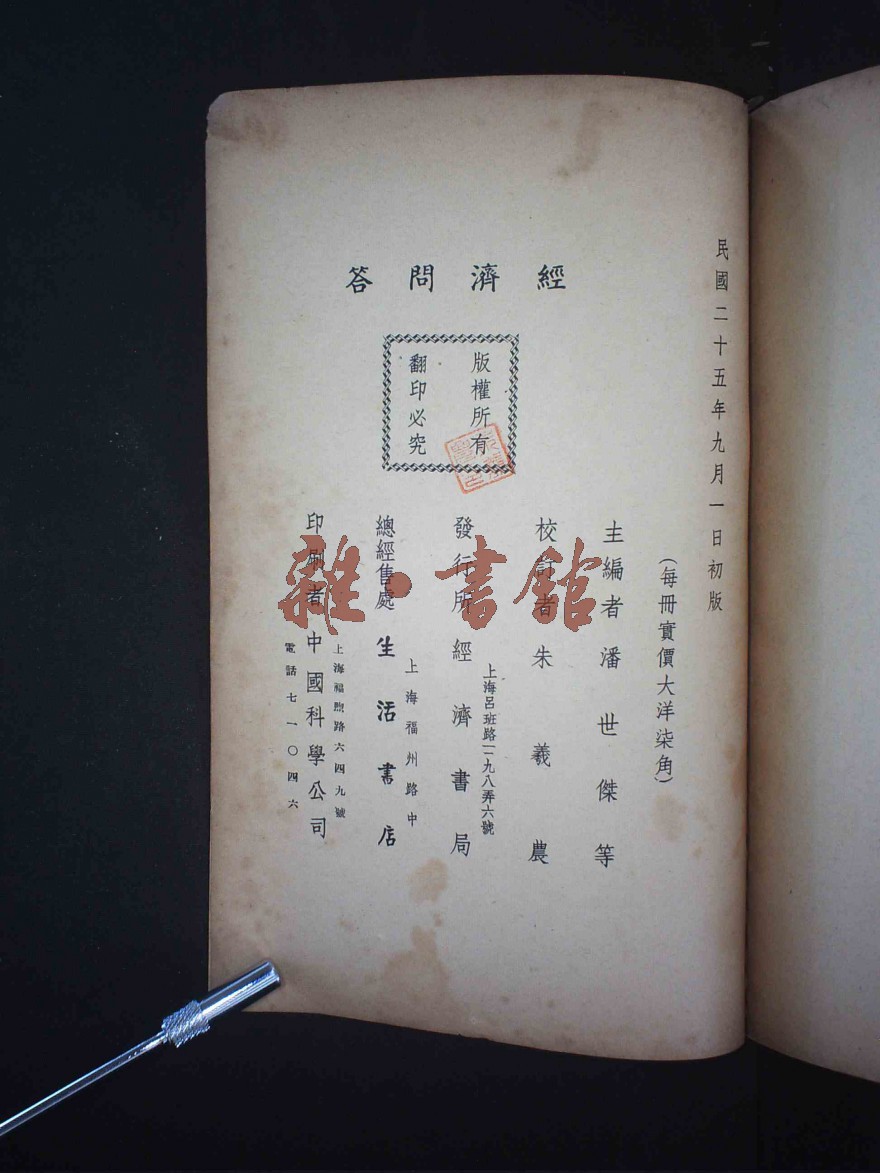 民國二十五年九月一日初版
(每冊實價大洋柒角)
經濟問答
版權所有
翻印必究
主編者潘世傑等
校訂者朱羲農
發行所經濟書局
上海呂班路一九八弄六號
總經售處生活書店
上海福州路中
印刷者中國科學公司
上海福煦路六四九號
電話七一〇四六
雜·書館